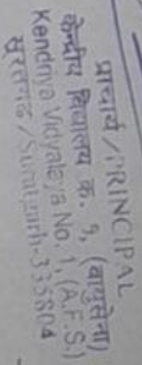 प्राचार्य/PRINCIPAL
केन्द्रीय विद्यालय क्र. १, (वायुसेना)
Kendriya Vidyalaya No. 1, (A.F.S.)
सूरतगढ/Suratgarh-335804